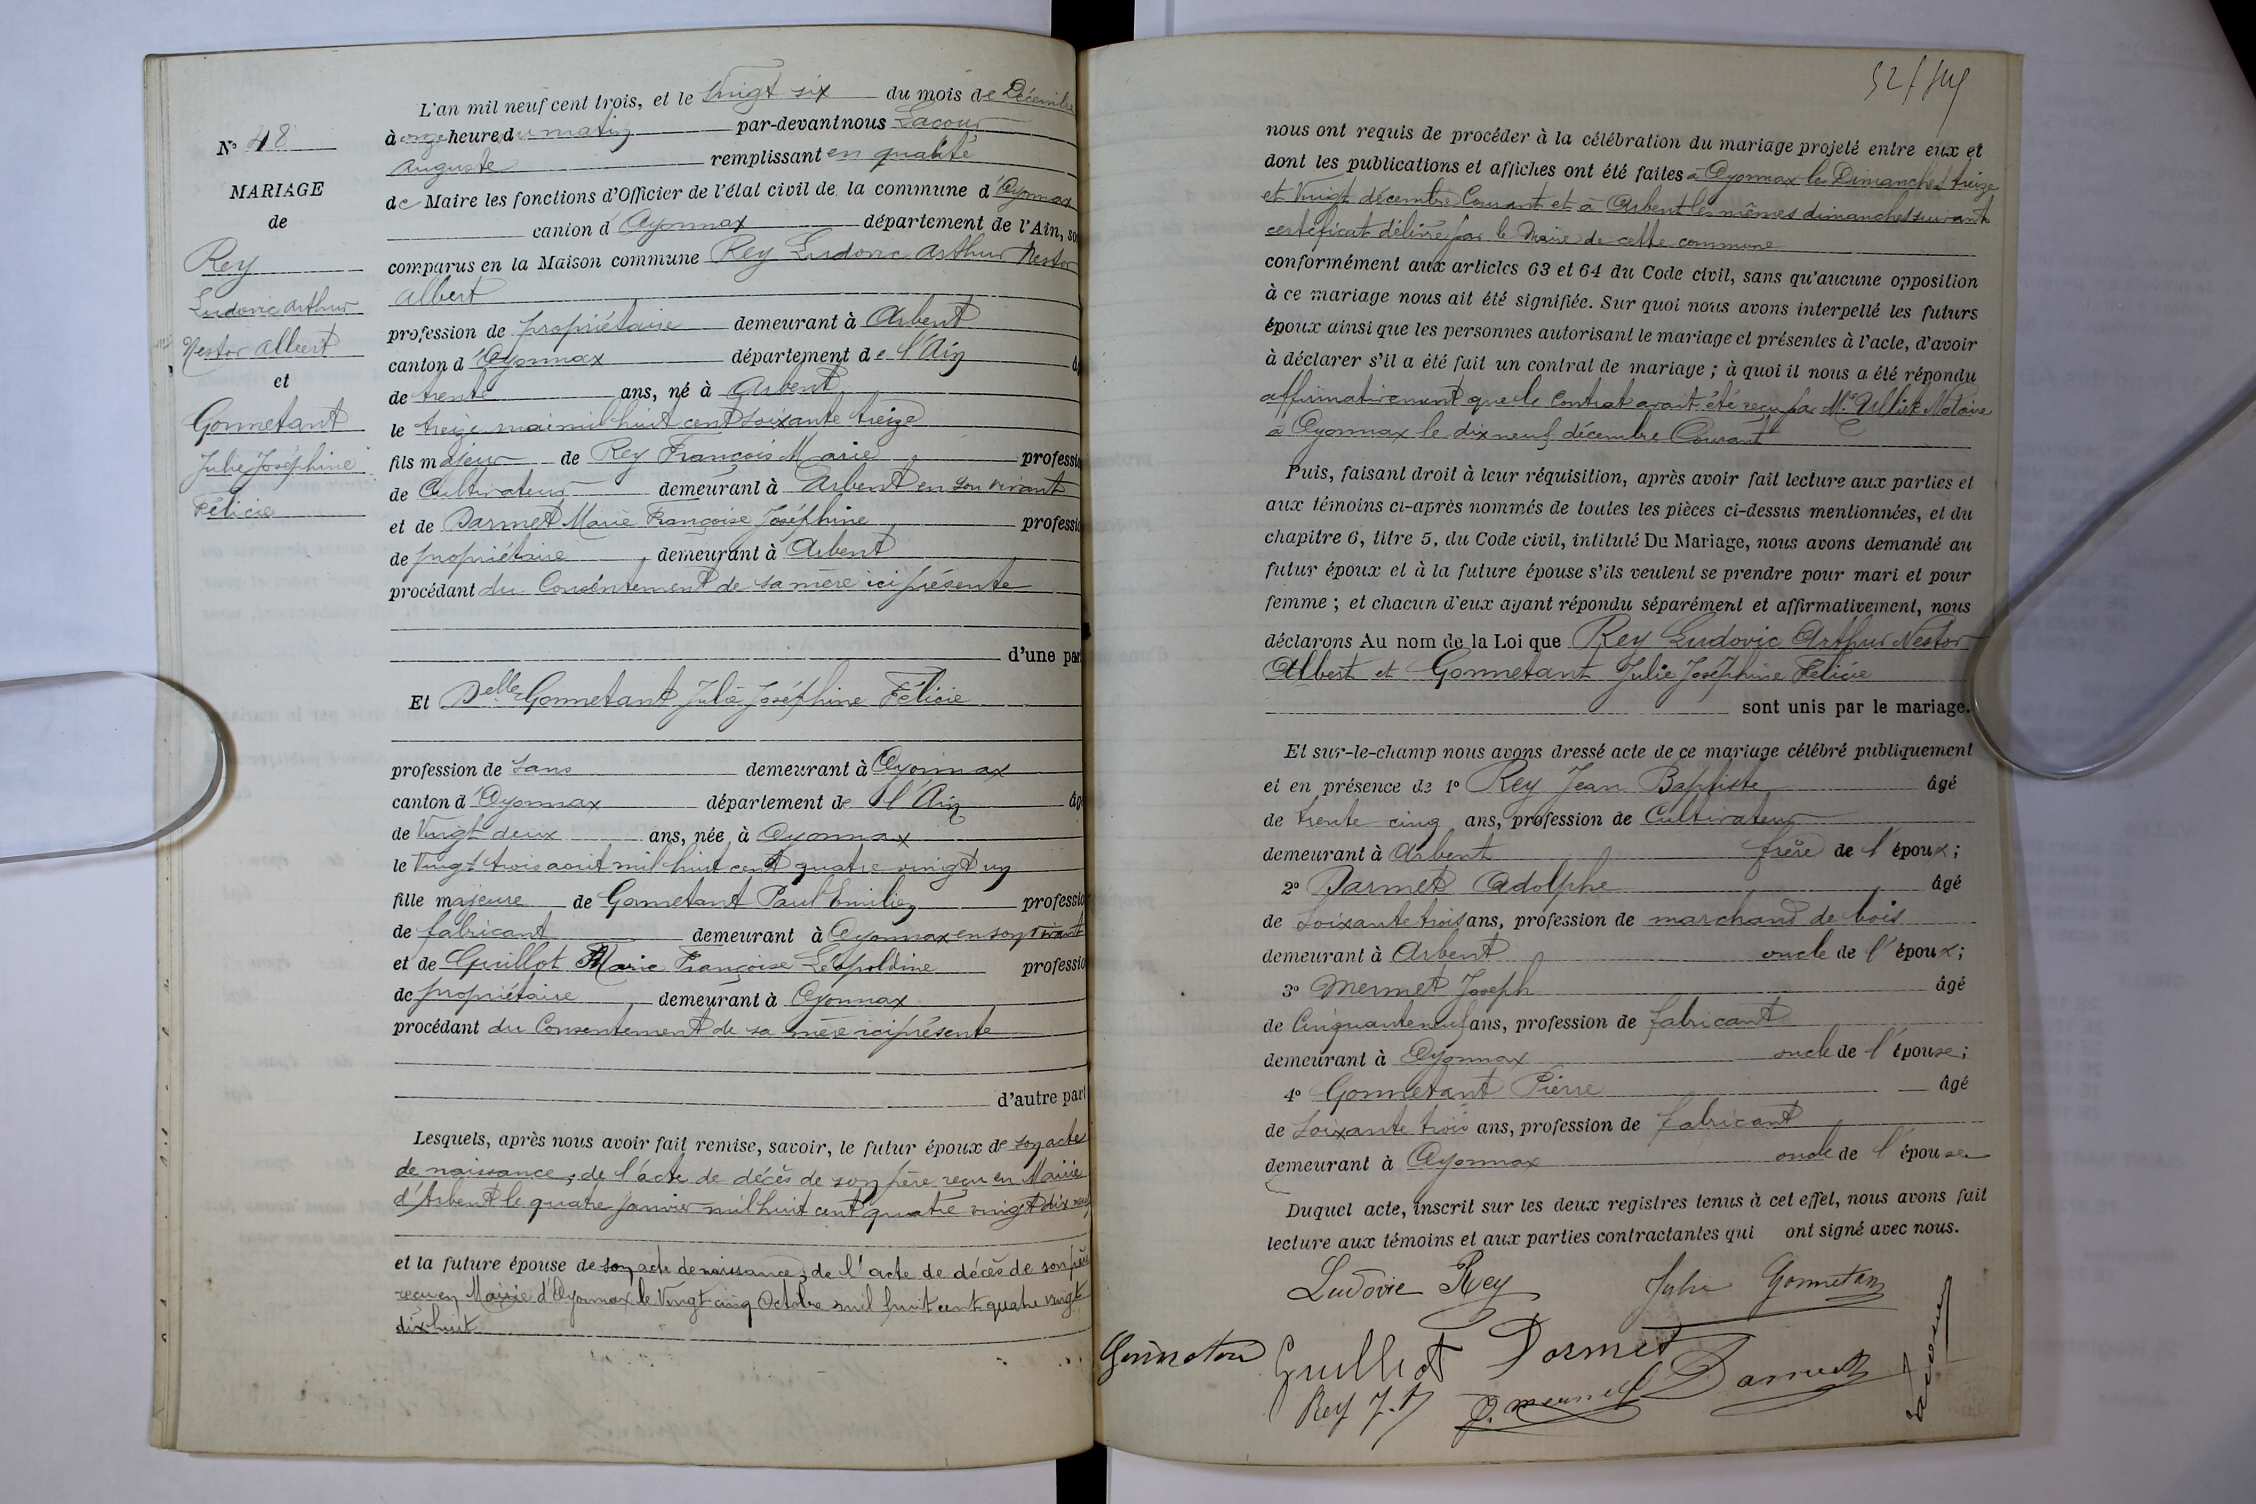 N° 48
MARIAGE
de
Rey
Ludovic Arthur
Nestor Albert
et
Gonnetant
Julie Joséphine
Félicie
L'an mil neuf cent trois, et le Vingt six du mois de Décembre
à onze heure du matin par-devant nous Lacour
Auguste remplissant en qualité
de Maire les fonctions d'Officier de l'état civil de la commune d'Oyonnax
canton d'Oyonnax département de l'Ain, so
comparus en la Maison commune Rey Ludovic Arthur Nestor
Albert
profession de propriétaire demeurant à Arbent
canton d'Oyonnax département de l'Ain â
de trente ans, né à Arbent
le treize mai mil huit cent soixante treize
fils majeur de Rey François Marie professio
de Cultivateur demeurant à Arbent en son vivant
et de Darmet Marie Françoise Joséphine professio
de propriétaire, demeurant à Arbent
procédant du Consentement de sa mère ici présente
d'une par
Et Delle Gonnetant Julie Joséphine Félicie
profession de sans demeurant à Oyonnax
canton d'Oyonnax département de l'Ain âg
de Vingt deux ans, née à Oyonnax
le Vingt trois aout mil huit cent quatre vingt un
fille majeure de Gonnetant Paul Emilien professio
de fabricant demeurant à Oyonnax en son vivant
et de Guillot Marie Françoise Léopoldine professio
de propriétaire, demeurant à Oyonnax
procédant du Consentement de sa mère ici présente
d'autre part
Lesquels, après nous avoir fait remise, savoir, le futur époux de son acte
de naissance, de l'acte de décès de son père reçu en Mairie
d'Arbent le quatre janvier mil huit cent quatre vingt dix neuf
et la future épouse de son acte de naissance, de l'acte de décès de son père
reçu en Mairie d'Oyonnax le Vingt cinq Octobre mil huit cent quatre vingt
dix huit
nous ont requis de procéder à la célébration du mariage projeté entre eux et
dont les publications et affiches ont été faites à Oyonnax les Dimanches treize
et Vingt décembre Courant et à Arbent les mêmes dimanches suivant
certificat délivré par le Maire de cette commune
conformément aux articles 63 et 64 du Code civil, sans qu'aucune opposition
à ce mariage nous ait été signifiée. Sur quoi nous avons interpellé les futurs
époux ainsi que les personnes autorisant le mariage et présentes à l'acte, d'avoir
à déclarer s'il a été fait un contrat de mariage ; à quoi il nous a été répondu
affirmativement que le Contrat avait été reçu par Me Notaire
à Oyonnax le dix neuf décembre Courant
Puis, faisant droit à leur réquisition, après avoir fait lecture aux parties et
aux témoins ci-après nommés de toutes les pièces ci-dessus mentionnées, et du
chapitre 6, titre 5, du Code civil, intitulé Du Mariage, nous avons demandé au
futur époux et à la future épouse s'ils veulent se prendre pour mari et pour
femme ; et chacun d'eux ayant répondu séparément et affirmativement, nous
déclarons Au nom de la Loi que Rey Ludovic Arthur Nestor
Albert et Gonnetant Julie Joséphine Félicie
sont unis par le mariage.
Et sur-le-champ nous avons dressé acte de ce mariage célébré publiquement
et en présence de 1° Rey Jean Baptiste âgé
de trente cinq ans, profession de Cultivateur
demeurant à Arbent frère de l'époux ;
2° Darmet Adolphe âgé
de soixante trois ans, profession de marchand de bois
demeurant à Arbent oncle de l'époux ;
3° Mermet Joseph âgé
de Cinquante neuf ans, profession de fabricant
demeurant à Oyonnax oncle de l'épouse ;
4° Gonnetant Pierre âgé
de soixante trois ans, profession de fabricant
demeurant à Oyonnax oncle de l'épouse
Duquel acte, inscrit sur les deux registres tenus à cet effet, nous avons fait
lecture aux témoins et aux parties contractantes qui ont signé avec nous.
Ludovic Rey Julie Gonnetan
Guillot Darmet
Rey J. B J. Mermet Darmet